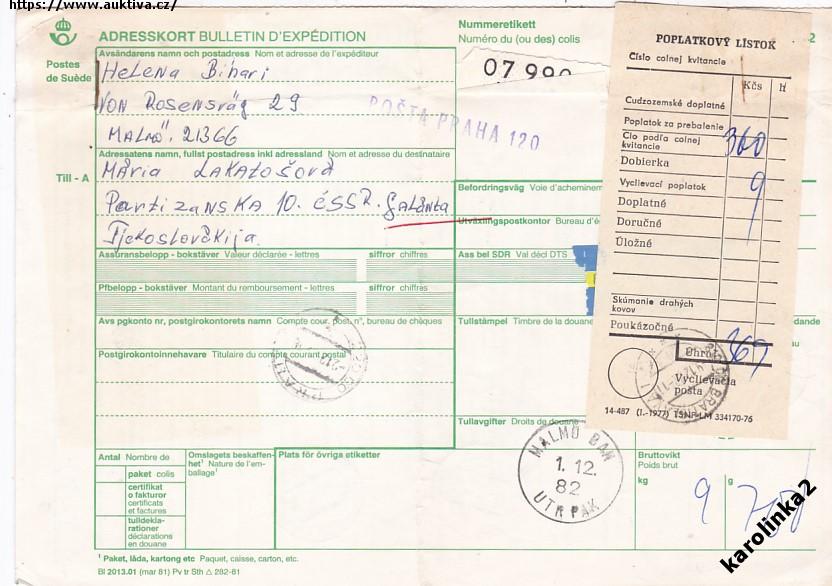 https://www.auktiva.cz/
ADRESSKORT BULLETIN D'EXPÉDITION
Postes
de Suède
Avsändarens namn och postadress Nom et adresse de l'expéditeur
Helena Bihari
VON Rosensväg 29
MALMÖ. 21366
Nummeretikett
Numéro du (ou des) colis
2
07 990
POŠTA PRAHA 120
Till - A
Adressatens namn, fullst postadress inkl adressland Nom et adresse du destinataire
MÁRia LAKATOŠOVÁ
PartizANSKA 10. ČSSR. GALÁNTA
Tjekoslovákija.
Befordringsväg Voie d'achemineme
Utväxlingspostkontor Bureau d'é
Assuransbelopp - bokstäver Valeur déclarée - lettres
siffror chiffres
Ass bel SDR Val décl DTS
Pfbelopp - bokstäver Montant du remboursement - lettres
siffror chiffres
Avs pgkonto nr, postgirokontorets namn Compte cour. post. n°, bureau de chèques
Tullstämpel Timbre de la douane
dande
Postgirokontoinnehavare Titulaire du compte courant postal
Tullavgifter Droits de douane
MALMÖ BAN
1. 12.
82
UTR PAK
Antal Nombre de
paket colis
certifikat
o fakturor
certificats
et factures
tulldekla-
rationer
déclarations
en douane
Omslagets beskaffen-
het¹ Nature de l'em-
ballage¹
Plats för övriga etiketter
Bruttovikt
Poids brut
kg
g
9
¹ Paket, låda, kartong etc Paquet, caisse, carton, etc.
Bl 2013.01 (mar 81) Pv tr Sth △ 282-81
POPLATKOVÝ LÍSTOK
Číslo colnej kvitancie
Kčs
h
Cudzozemské doplatné
Poplatok za prebalenie
Clo podľa colnej
kvitancie
360
Dobierka
Vyclievací poplatok
9
Doplatné
Doručné
Úložné
Skúmanie drahých
kovov
Poukázočné
Úhrn
369
Vyclievacia
pošta
14-487 (I.-1977) TSNP-LM 334170-76
karolinka2